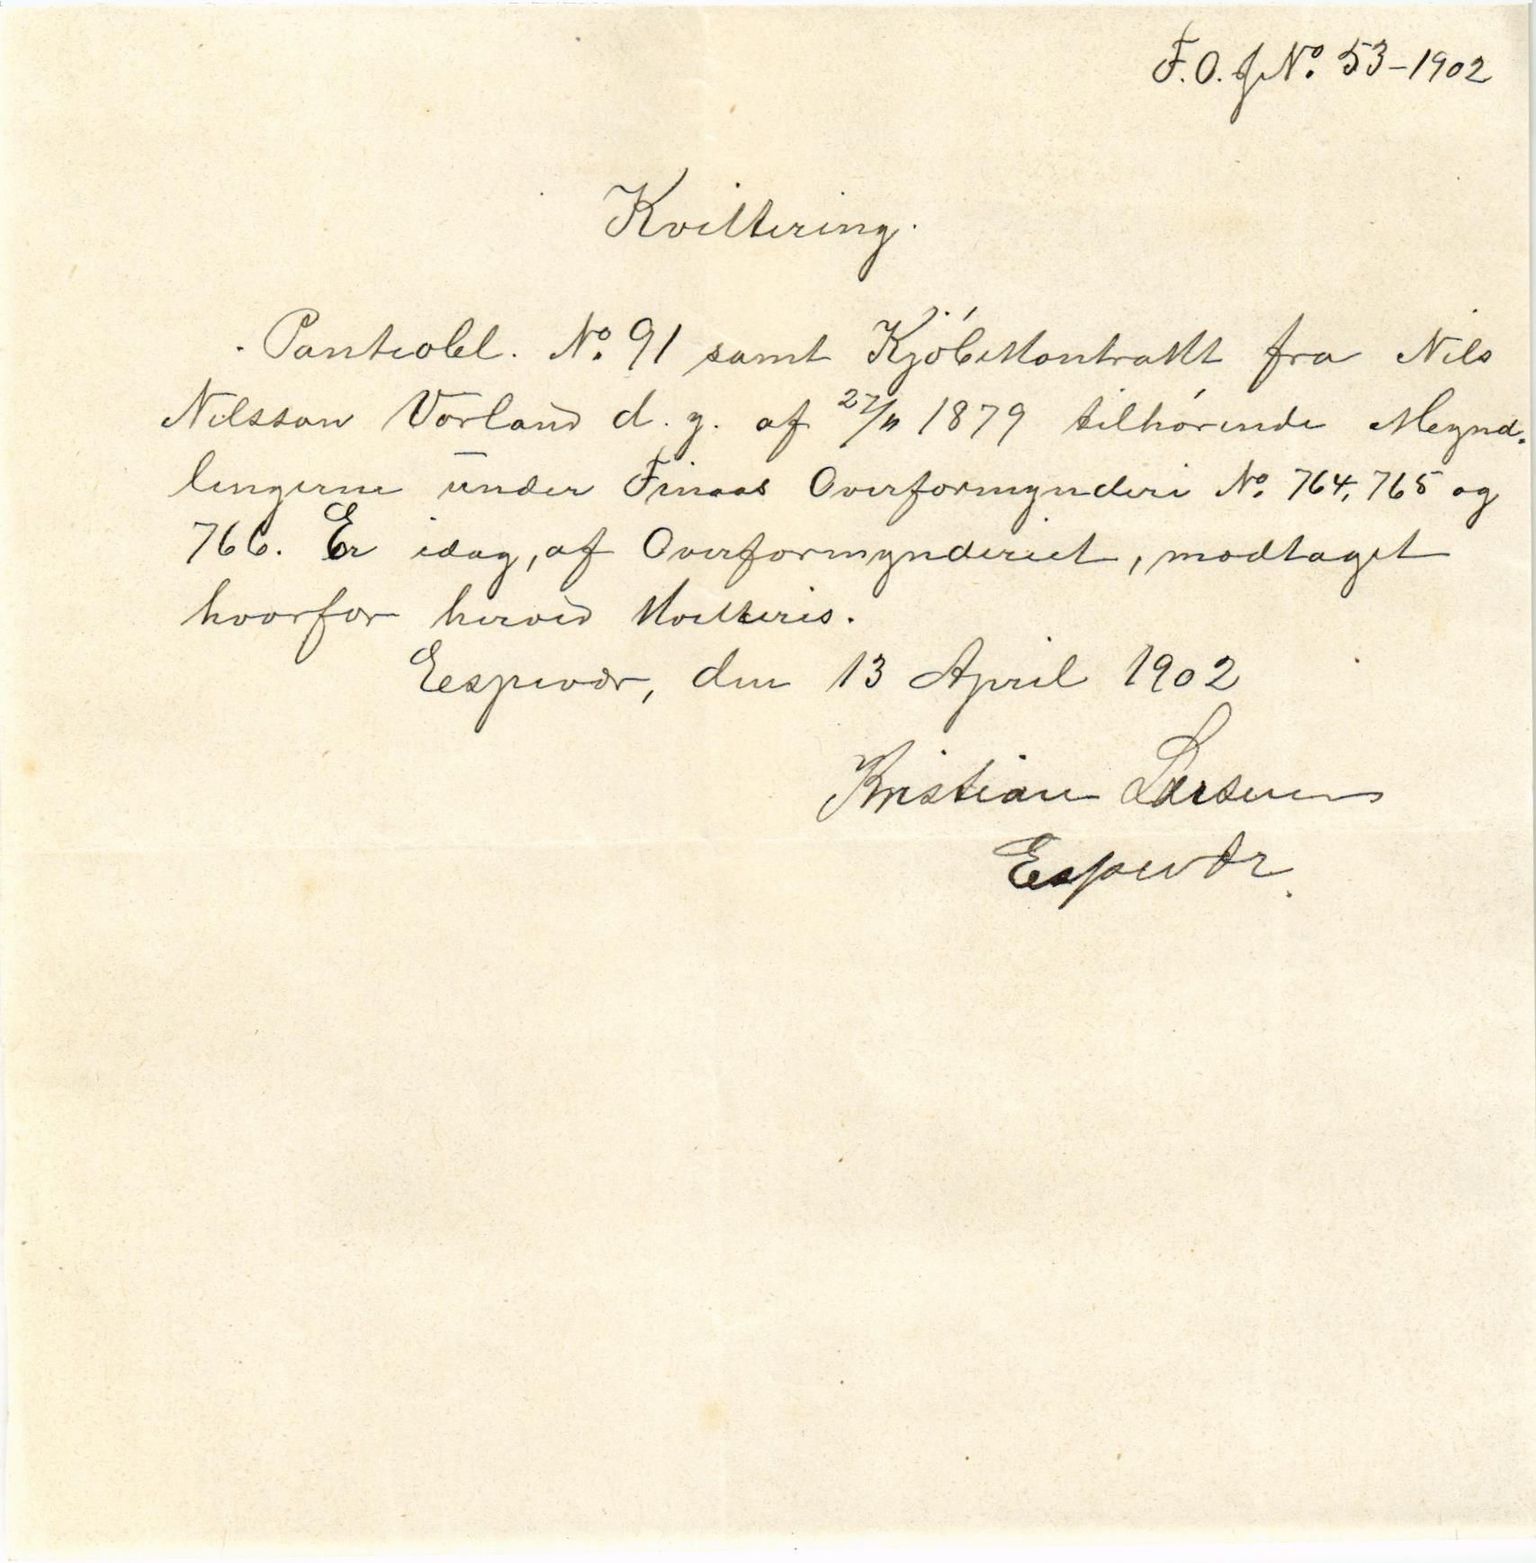 F.O. J No. 53-1902
Kvittering.
Panteobl. No. 91 samt Kjøbekontrakt fra Nils
Nilsson Vorland d. y. af 27/11 1879 tilhørende Meynd-
lingerne under Finaas Overformynderi No. 764, 765 og
766. Er idag, af Overformynderiet, modtaget
hvorfor herved kvitteris.
Espevær, den 13 April 1902
Kristian Larsen
Espevær.